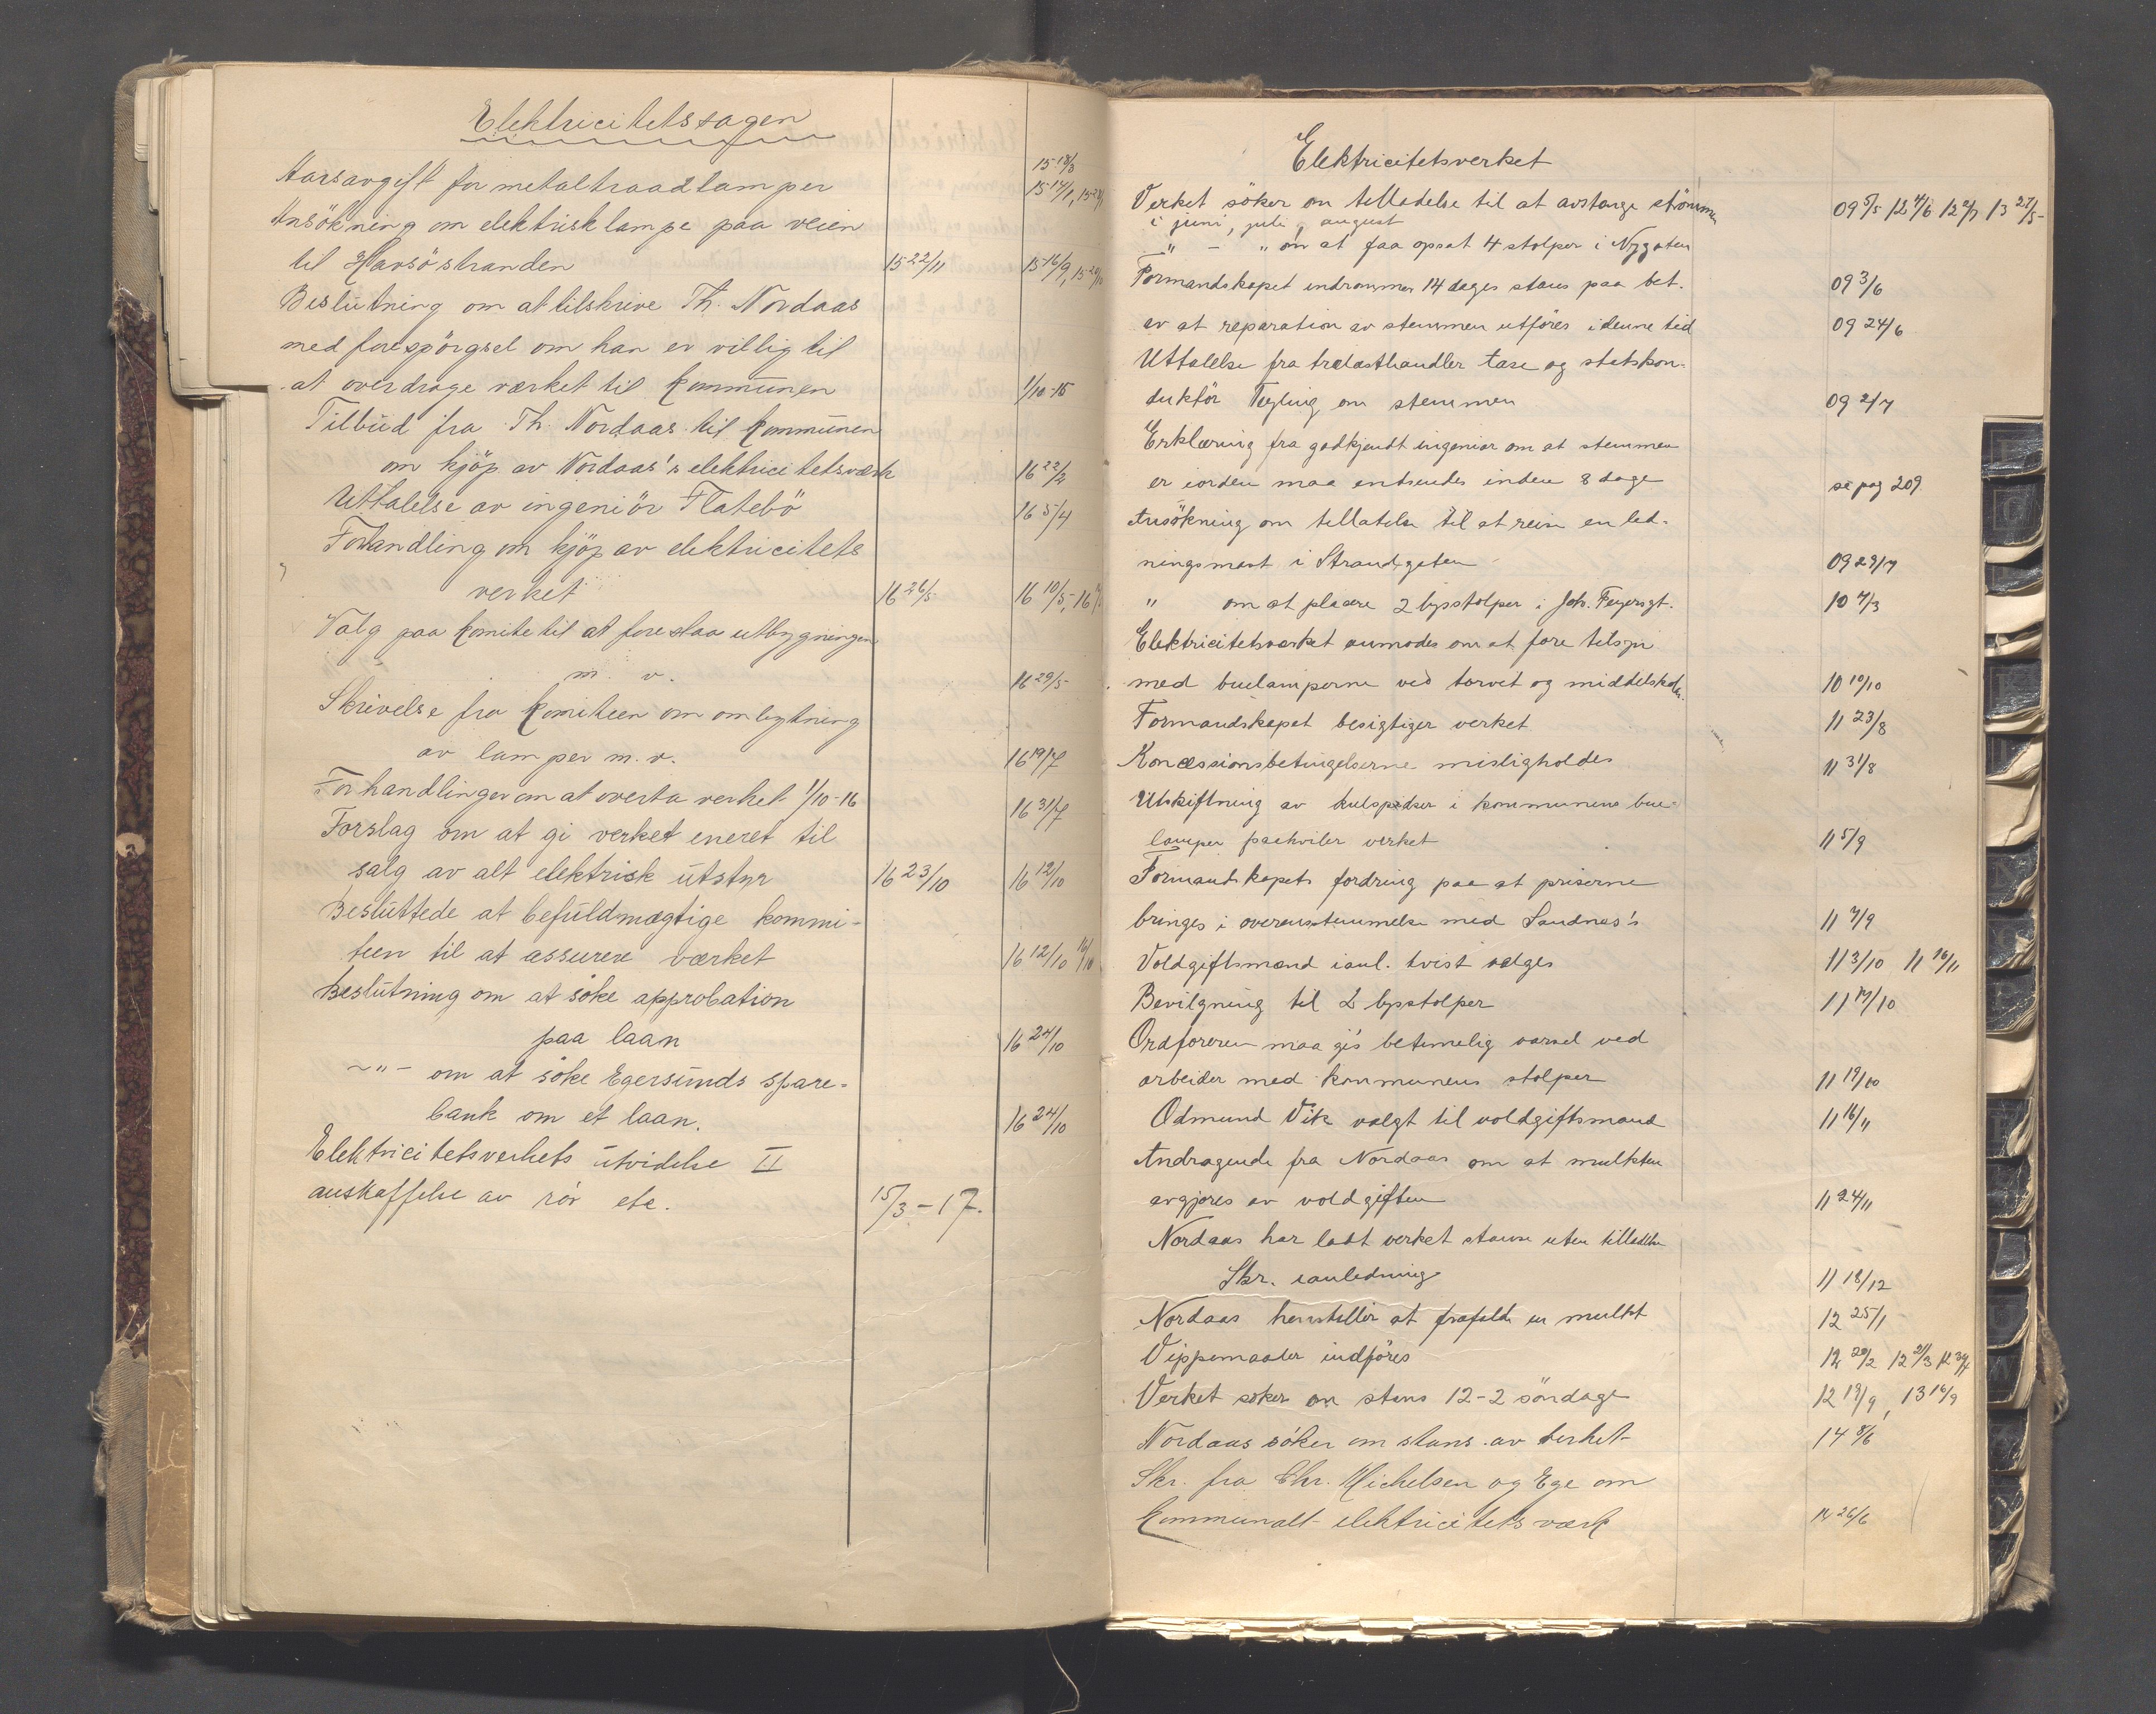 Elektricitetssagen
Aarsavgift for metaltraadlamper 15 18/3 15 14/1,
Ansökning om elektrisk lampe paa veien
til Havsöstranden 15 22/11 15 16/9,
Beslutning om at tilskrive Th. Nordaas
med forespörgsel om han er villig til
at overdrage værket til kommunen 1/10-15
Tilbud fra Th. Nordaas til kommunen
om kjöp av Nordaas's elektricitetsværk 16 22/2
Uttalelse av ingeniör Flatebö 16 5/4
Forhandling om kjöp av elektricitets
verket 16 26/5 16 10/5,
Valg paa komite til at foreslaa utbygningen
m. v. 16 29/5
Skrivelse fra komiteen om ombytning
av lamper m. v. 16 19/7
Forhandlinger om at overta verket 1/10-16 16 31/7
Forslag om at gi verket eneret til
salg av alt elektrisk utstyr 16 23/10 16 12/10
Besluttede at befuldmægtige kommi-
teen til at assurere værket 16 12/10 16/10
Beslutning om at söke approbation
paa laan 16 24/10
-"- om at söke Egersunds spare-
bank om et laan. 16 24/10
Elektricitetsverkets utvidelse II
anskaffelse av rör etc. 15/3-17.
Elektricitetsverket
Verket söker om tilladelse til at avstænge strömmen 09 5/5 12 4/6 13 27/5
i juni, juli, august
" - " om at faa opsat 4 stolper i Nygaten
Formandskapet indrömmer 14 dages stans paa bet. 09 3/6
av at reparation av stemmen utföres i denne tid 09 24/6
Uttalelse fra trælasthandler Aase og statskon-
duktör om stemmen 09 2/7
Erklæring fra godkjendt ingeniör om at stemmen
er iorden maa indsendes inden 8 dage se pag 209
Ansökning om tillatelse til at reise en led-
ningsmast i Strandgaten 09 29/7
" om at placere 2 lysstolper i Joh. Feyersgt. 10 7/3
Elektricitetsværket anmodes om at före tilsyn
med buelamperne ved torvet og middelskolen. 10 10/10
Formandskapet besigtiger verket 11 23/8
Koncessionsbetingelserne misligholdes 11 31/8
Utskiftning av kulspidser i kommunens bue-
lamper paahviler verket 11 5/9
Formandskapets fordring paa at priserne
bringes i overensstemmelse med Sandnes's 11 7/9
Voldgiftsmænd ianl. tvist vælges 11 3/10 11 16/11
Bevilgning til 2 lysstolper 11 17/10
Ordföreren maa gis betimelig varsel ved
arbeider med kommunens stolper 11 19/10
Odmund Vik valgt til voldgiftsmand 11 16/11
Andragende fra Nordaas om at mulkten
avgjöres av voldgiften 11 24/11
Nordaas har latt verket stanse uten tilladelse
Skr. ianledning 11 18/12
Nordaas henstiller at frafalde en mulkt 12 25/1
Vippemaaler indföres 12 20/2 12 21/3
Verket söker om stans 12-2 söndage 12 19/9, 13 16/9
Nordaas söker om stans av verket 14 8/6
Skr. fra Chr. Michelsen og Ege om
Kommunalt elektricitetsværk 14 26/6